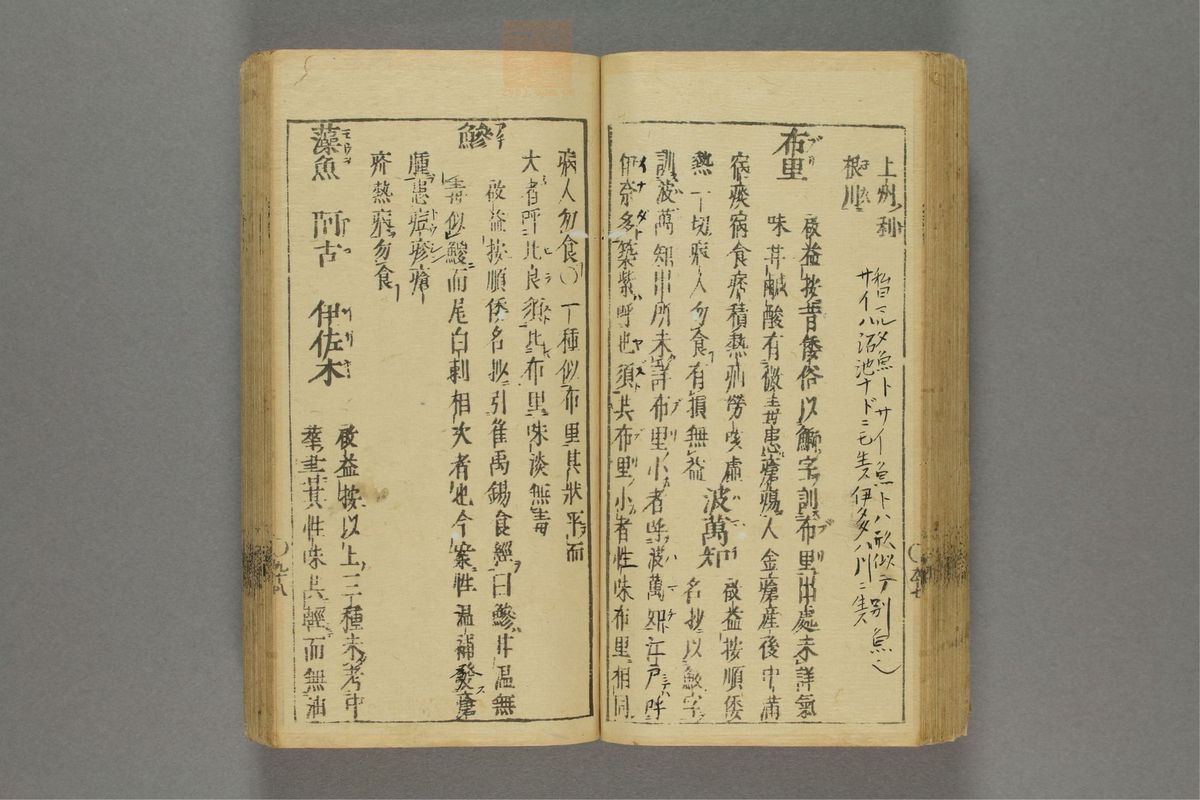 上州利
根川
サイハ沼池ナドニモ生ス伊多ハ川ニ生ス
布里 ブリ
啟益按昔倭俗以鰤字訓布里出處未詳氣
味甘鹹酸有微毒患瘡瘍人金瘡産後中満
宿痰病食痞積熱労咳虚
熱一切病人勿食有損無益
波萬知
啟益按順倭
名抄以魬字
訓波萬知出所未詳布里小者呼波萬知江戸呼
伊奈多築紫呼也須共布里小者性味布里相同
病人勿食〇一種似布里其状平而
大者呼比良須比布里味淡無毒
鰺 アチ
啟益按順倭名抄引崔禹錫食經曰鰺甘温無
毒似鯼而尾白刺相次者也今案性温補發瘡
腫患痘疹瘡
疥熱病勿食
藻魚 阿古 伊佐木
啟益按以上三種未考中
華書其性味共輕而無油
〇九十七
〇九十八